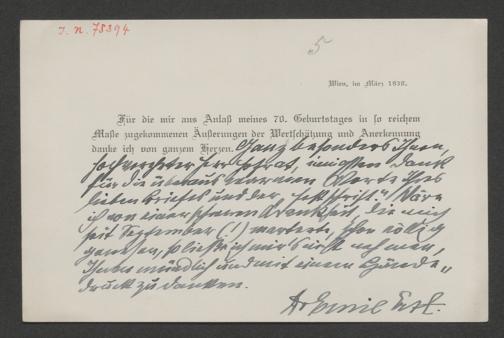 J. N. 78394
5
Wien, im März 1930.
Für die mir aus Anlaß meines 70. Geburtstages in so reichem
Maße zugekommenen Äußerungen der Wertschätzung und Anerkennung
danke ich von ganzem Herzen. Ganz besonders Ihnen,
hochverehrter Herr Hofrat, innigsten Dank
für die überaus warmen Worte Ihres
lieben Briefes und der „Festschrift“. Wäre
ich von einer schweren Krankheit, die mich
seit September (!) marterte, schon völlig
genesen, so ließe ich mir's nicht nehmen,
Ihnen mündlich und mit einem Hände-
druck zu danken.
Dr Emil Ertl.